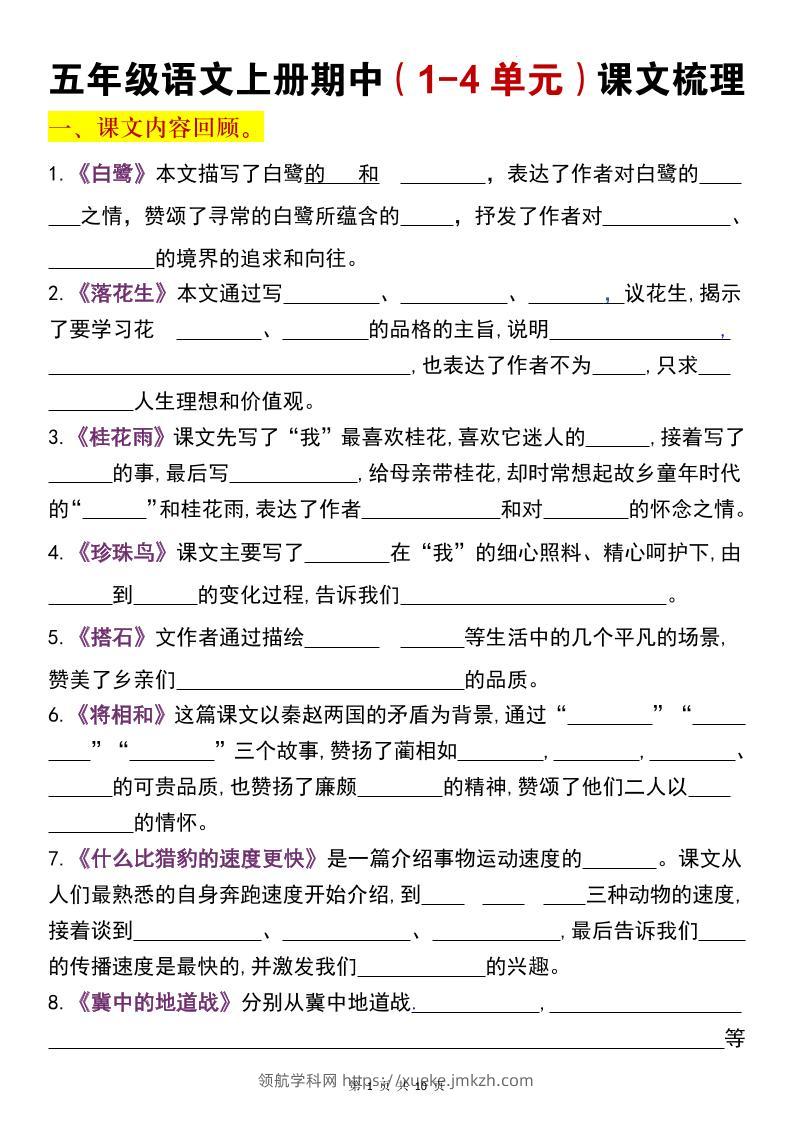 五年级语文上册期中（1-4 单元）课文梳理
一、课文内容回顾。
1.《白鹭》本文描写了白鹭的___和 ________，表达了作者对白鹭的____
___之情，赞颂了寻常的白鹭所蕴含的_____，抒发了作者对____________、
__________的境界的追求和向往。
2.《落花生》本文通过写_________、__________、_______，_议花生,揭示
了要学习花 ________、________的品格的主旨,说明________________，
__________________________________,也表达了作者不为_____,只求___
________人生理想和价值观。
3.《桂花雨》课文先写了“我”最喜欢桂花,喜欢它迷人的______,接着写了
______的事,最后写____________,给母亲带桂花,却时常想起故乡童年时代
的“______”和桂花雨,表达了作者_____________和对________的怀念之情。
4.《珍珠鸟》课文主要写了________在“我”的细心照料、精心呵护下,由
______到______的变化过程,告诉我们_________________________。
5.《搭石》文作者通过描绘_______ ______等生活中的几个平凡的场景,
赞美了乡亲们___________________________的品质。
6.《将相和》这篇课文以秦赵两国的矛盾为背景,通过“________”“_____
____”“________”三个故事,赞扬了蔺相如________,________,________、
______的可贵品质,也赞扬了廉颇________的精神,赞颂了他们二人以____
________的情怀。
7.《什么比猎豹的速度更快》是一篇介绍事物运动速度的_______。课文从
人们最熟悉的自身奔跑速度开始介绍,到____ ____ ____三种动物的速度,
接着谈到____________、____________、____________,最后告诉我们____
的传播速度是最快的,并激发我们____________的兴趣。
8.《冀中的地道战》分别从冀中地道战.___________,__________________
________________________________________________________________等
领航学科网 https://xueke.jmkzh.com
第 1 页 共 16 页